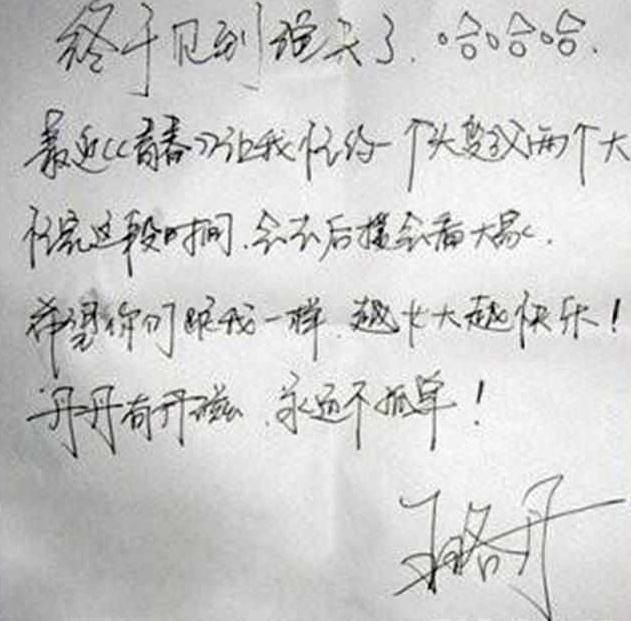 终于见到磁头了.哈哈哈.
最近《青春》让我忙的一个头变成两个大
忙完这段时间.会去后援会看大家.
希望你们跟我一样.越长大越快乐!
丹丹有丹磁.永远不孤单!
王珞丹